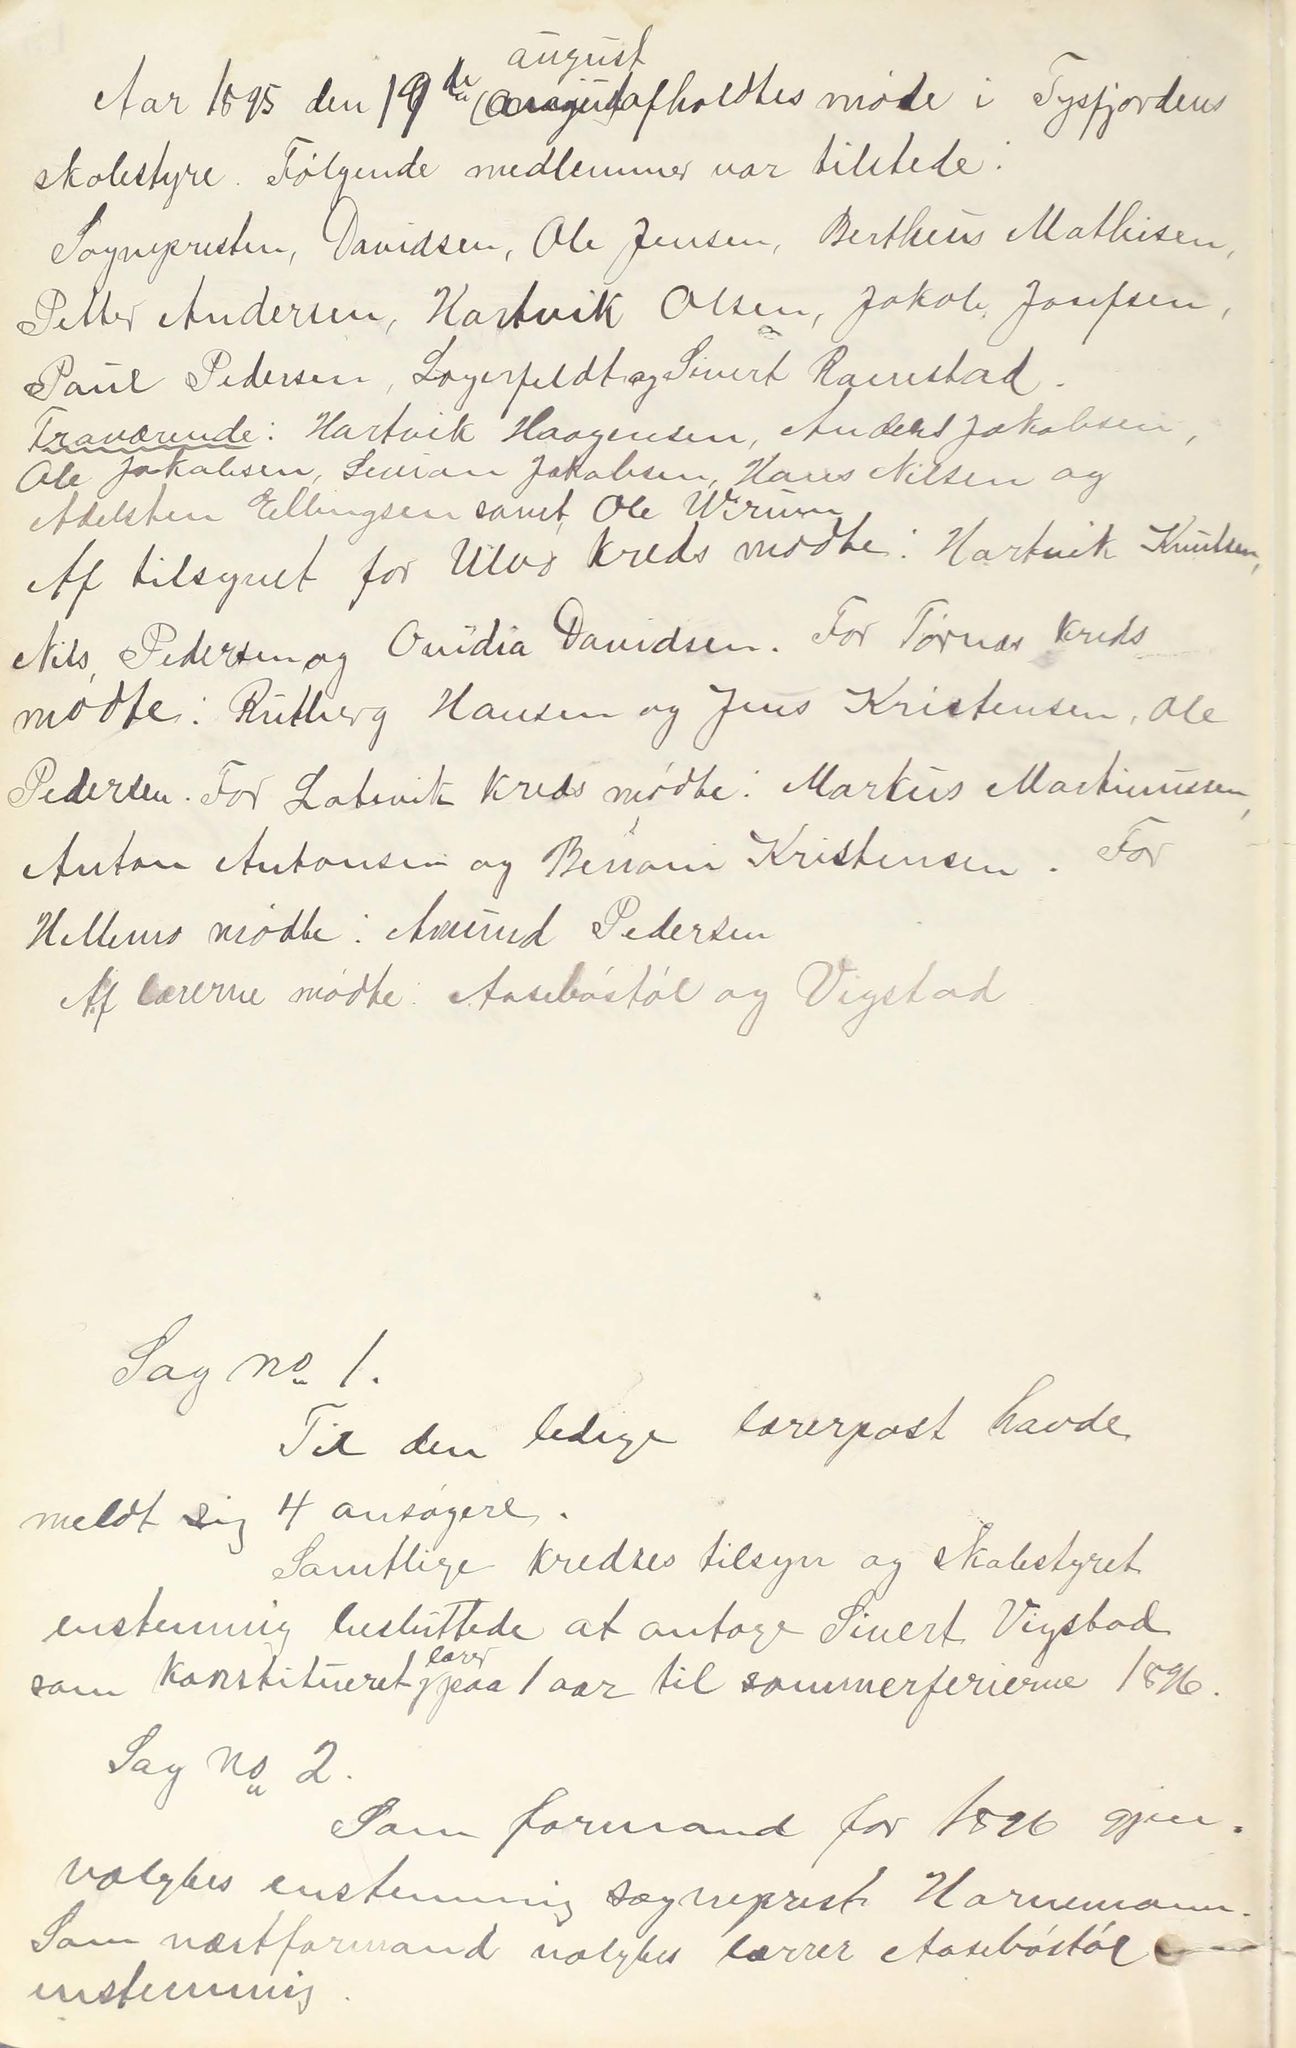 august
Aar 1895 den 19de afholdtes møde i Tysfjordens
skolestyre. Følgende medlemmer var tilstede:
Sognepresten, Davidsen, Ole Jensen, Bertheus Mathisen,
Petter Andersen, Hartvik Olsen, Jakob Josefsen,
Paul Pedersen, Lagerfeldt og Sivert Ramstad.
Fraværende: Hartvik Haagensen, Anders Jakobsen,
Ole Jakobsen, Simon Jakobsen, Hans Nilsen og
Adelsten Ellingsen samt Ole Wirum
Af tilsynet for Ulvø kreds mødte: Hartvik Knutsen,
Nils Pedersen og Ovidia Davidsen. For Tørnes kreds
mødte: Rutberg Hansen og Jens Kristensen, Ole
Pedersen. For Løtsvik kreds mødte: Markus Martinussen,
Anton Antonsen og Benoni Kristensen. For
Hellemo mødte: Amund Pedersen
Af lærerne mødte: Aasebøstøl og Vigstad
Sag no 1.
Til den ledige lærerpost havde
meldt sig 4 ansøgere.
Samtlige kredses tilsyn og skolestyret
enstemmig besluttede at antage Sivert Vigstad
som konstitueret lærer paa 1 aar til sommerferierne 1896.
Sag no 2.
Som formand for 1896 gjen-
valgtes enstemmig sogneprest Hornemann.
Som næstformand valgtes lærer Aasebøstøl
enstemmig.